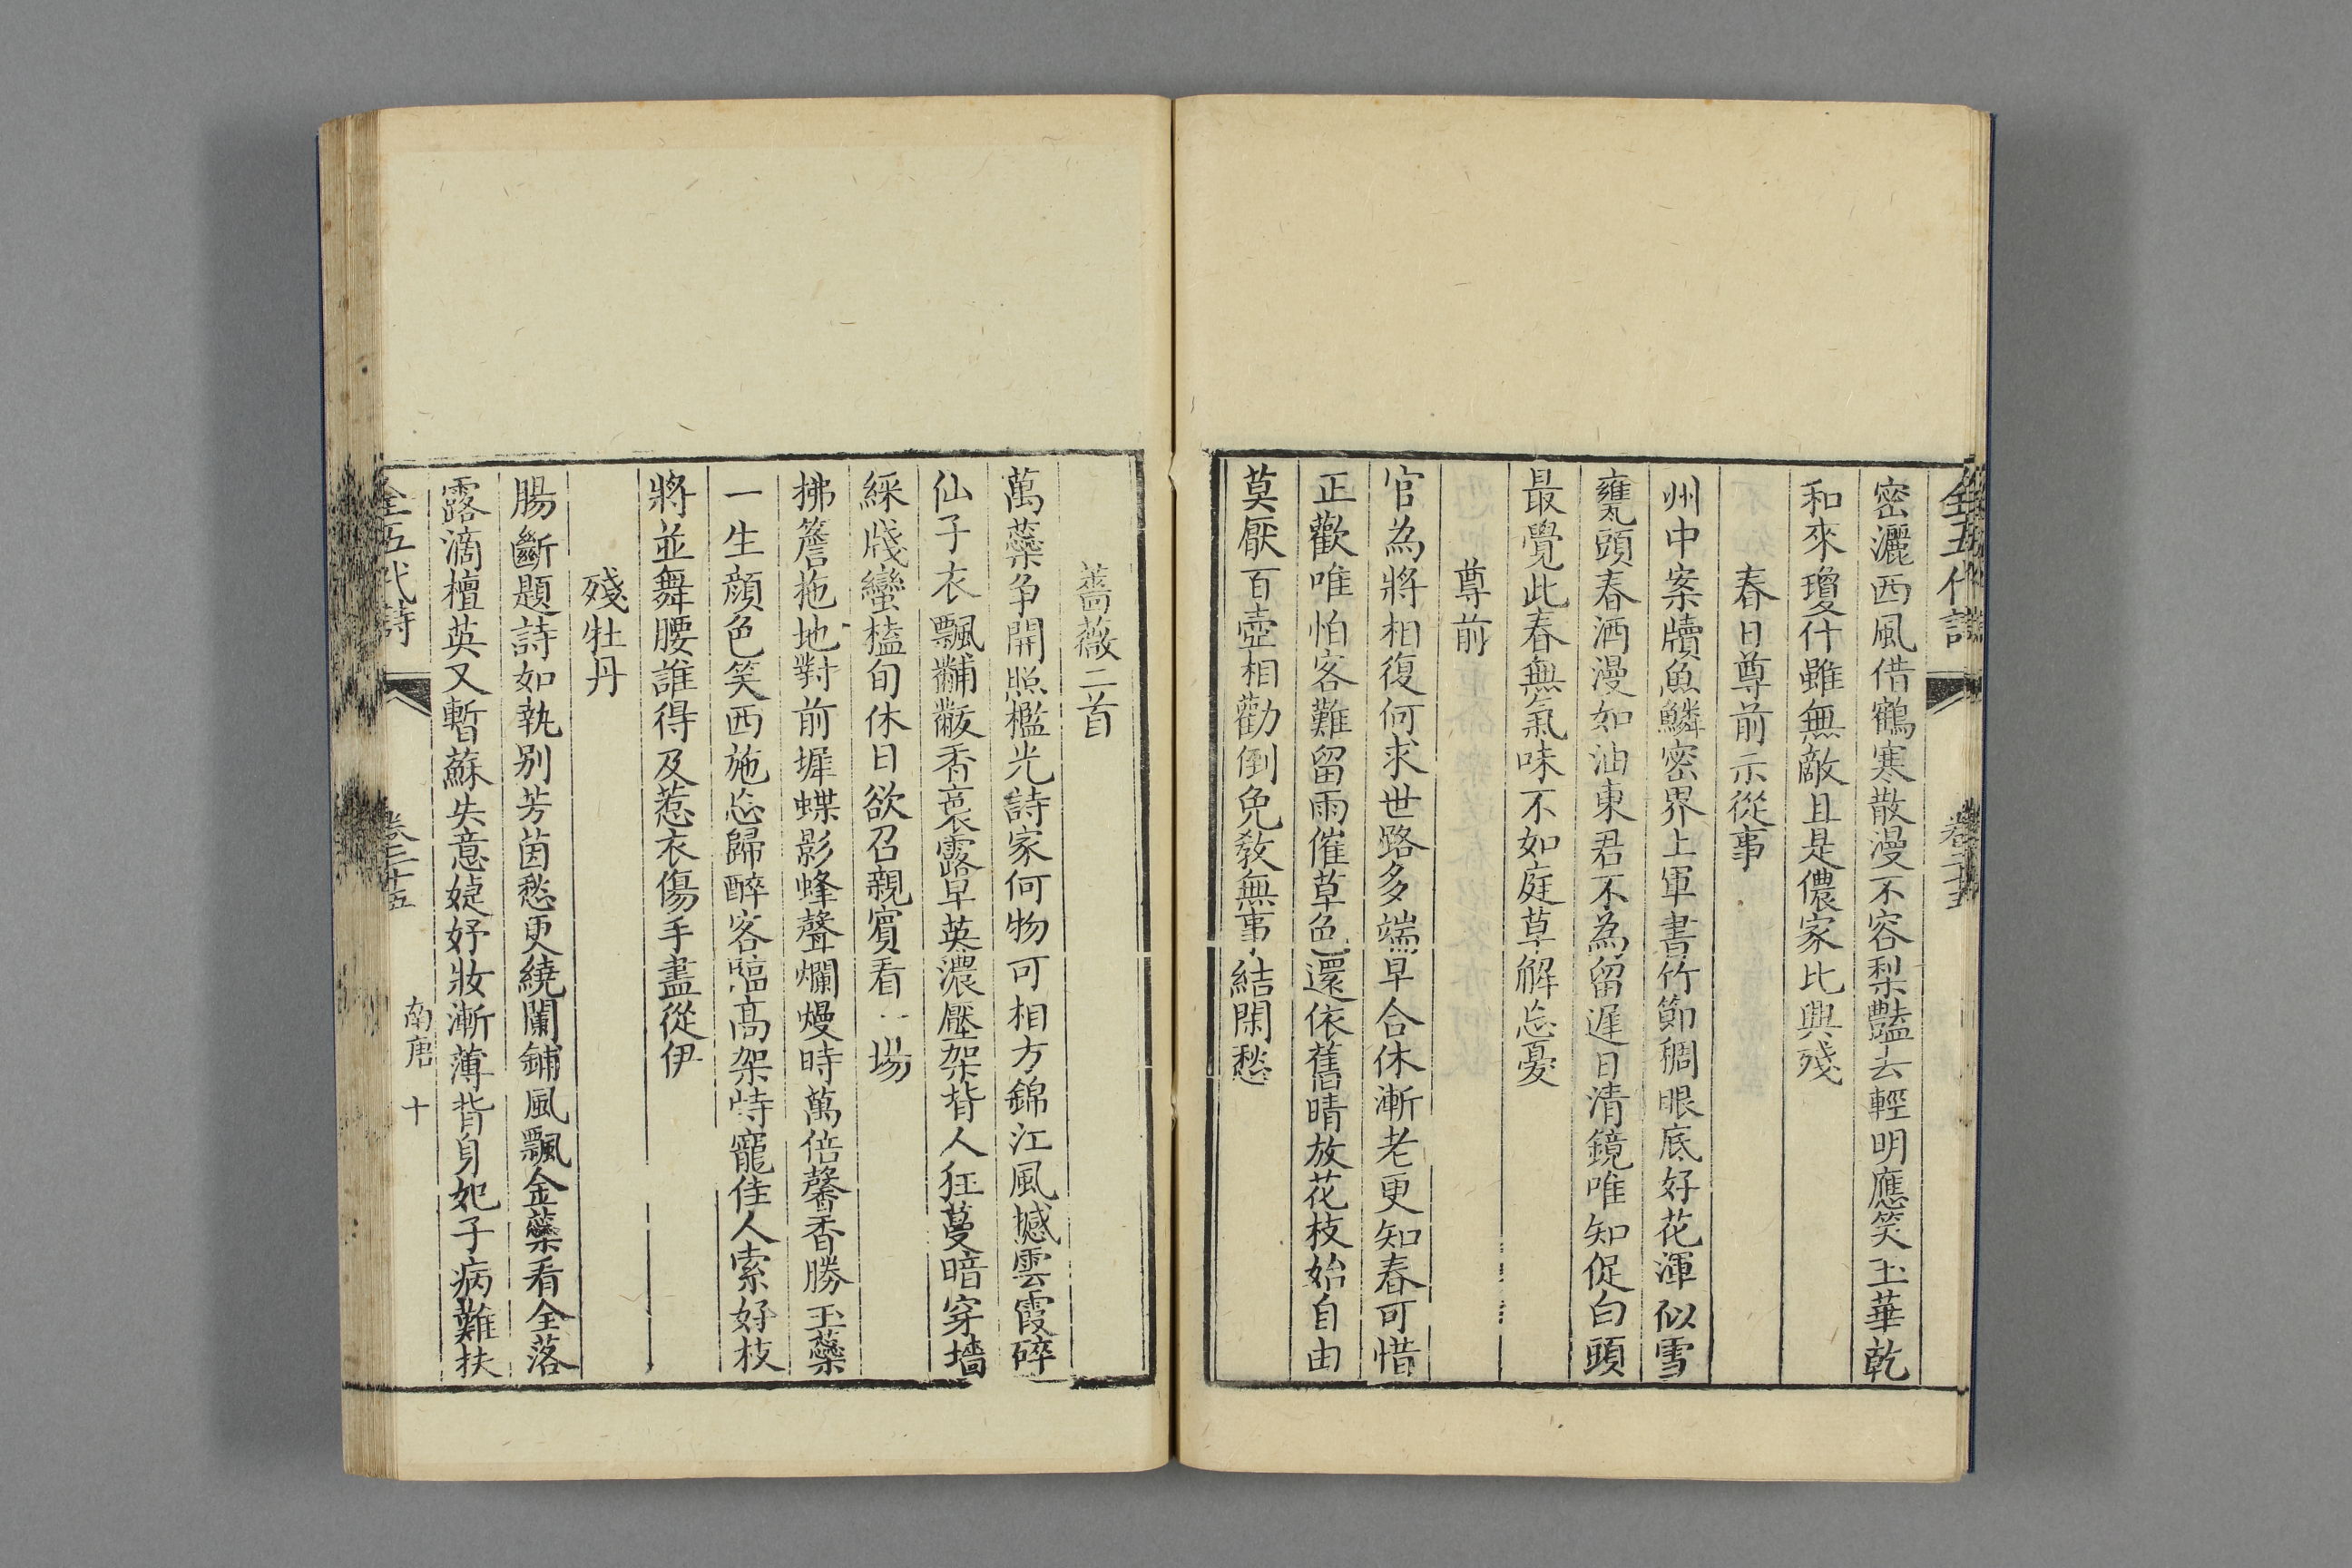 全五代詩
卷二十五
密灑西風借鶴寒散漫不容梨豔去輕明應笑玉華乾
和來瓊什雖無敵且是儂家比興殘
春日尊前示從事
州中案牘魚鱗密界上軍書竹節稠眼底好花渾似雪
甕頭春酒漫如油東君不為留遲日清鏡唯知促白頭
最覺此春無氣味不如庭草解忘憂
尊前
官為將相復何求世路多端早合休漸老更知春可惜
正歡唯怕客難留雨催草色還依舊晴放花枝始自由
莫厭百壺相勸倒免敎無事結閑愁
薔薇二首
萬蘂爭開照檻光詩家何物可相方錦江風撼雲霞碎
仙子衣飄黼黻香裛露早英濃壓架背人狂蔓暗穿墻
綵牋蠻榼旬休日欲召親賓看一場
拂簷拖地對前墀蝶影蜂聲爛熳時萬倍馨香勝玉蘂
一生顏色笑西施忘歸醉客臨高架恃寵佳人索好枝
將並舞腰誰得及惹衣傷手盡從伊
殘牡丹
腸斷題詩如執别芳茵愁更繞闌鋪風飄金蘂看全落
露滴檀英又暫蘇失意婕妤妝漸薄背身妃子病難扶
全五代詩
卷二十五
南唐 十